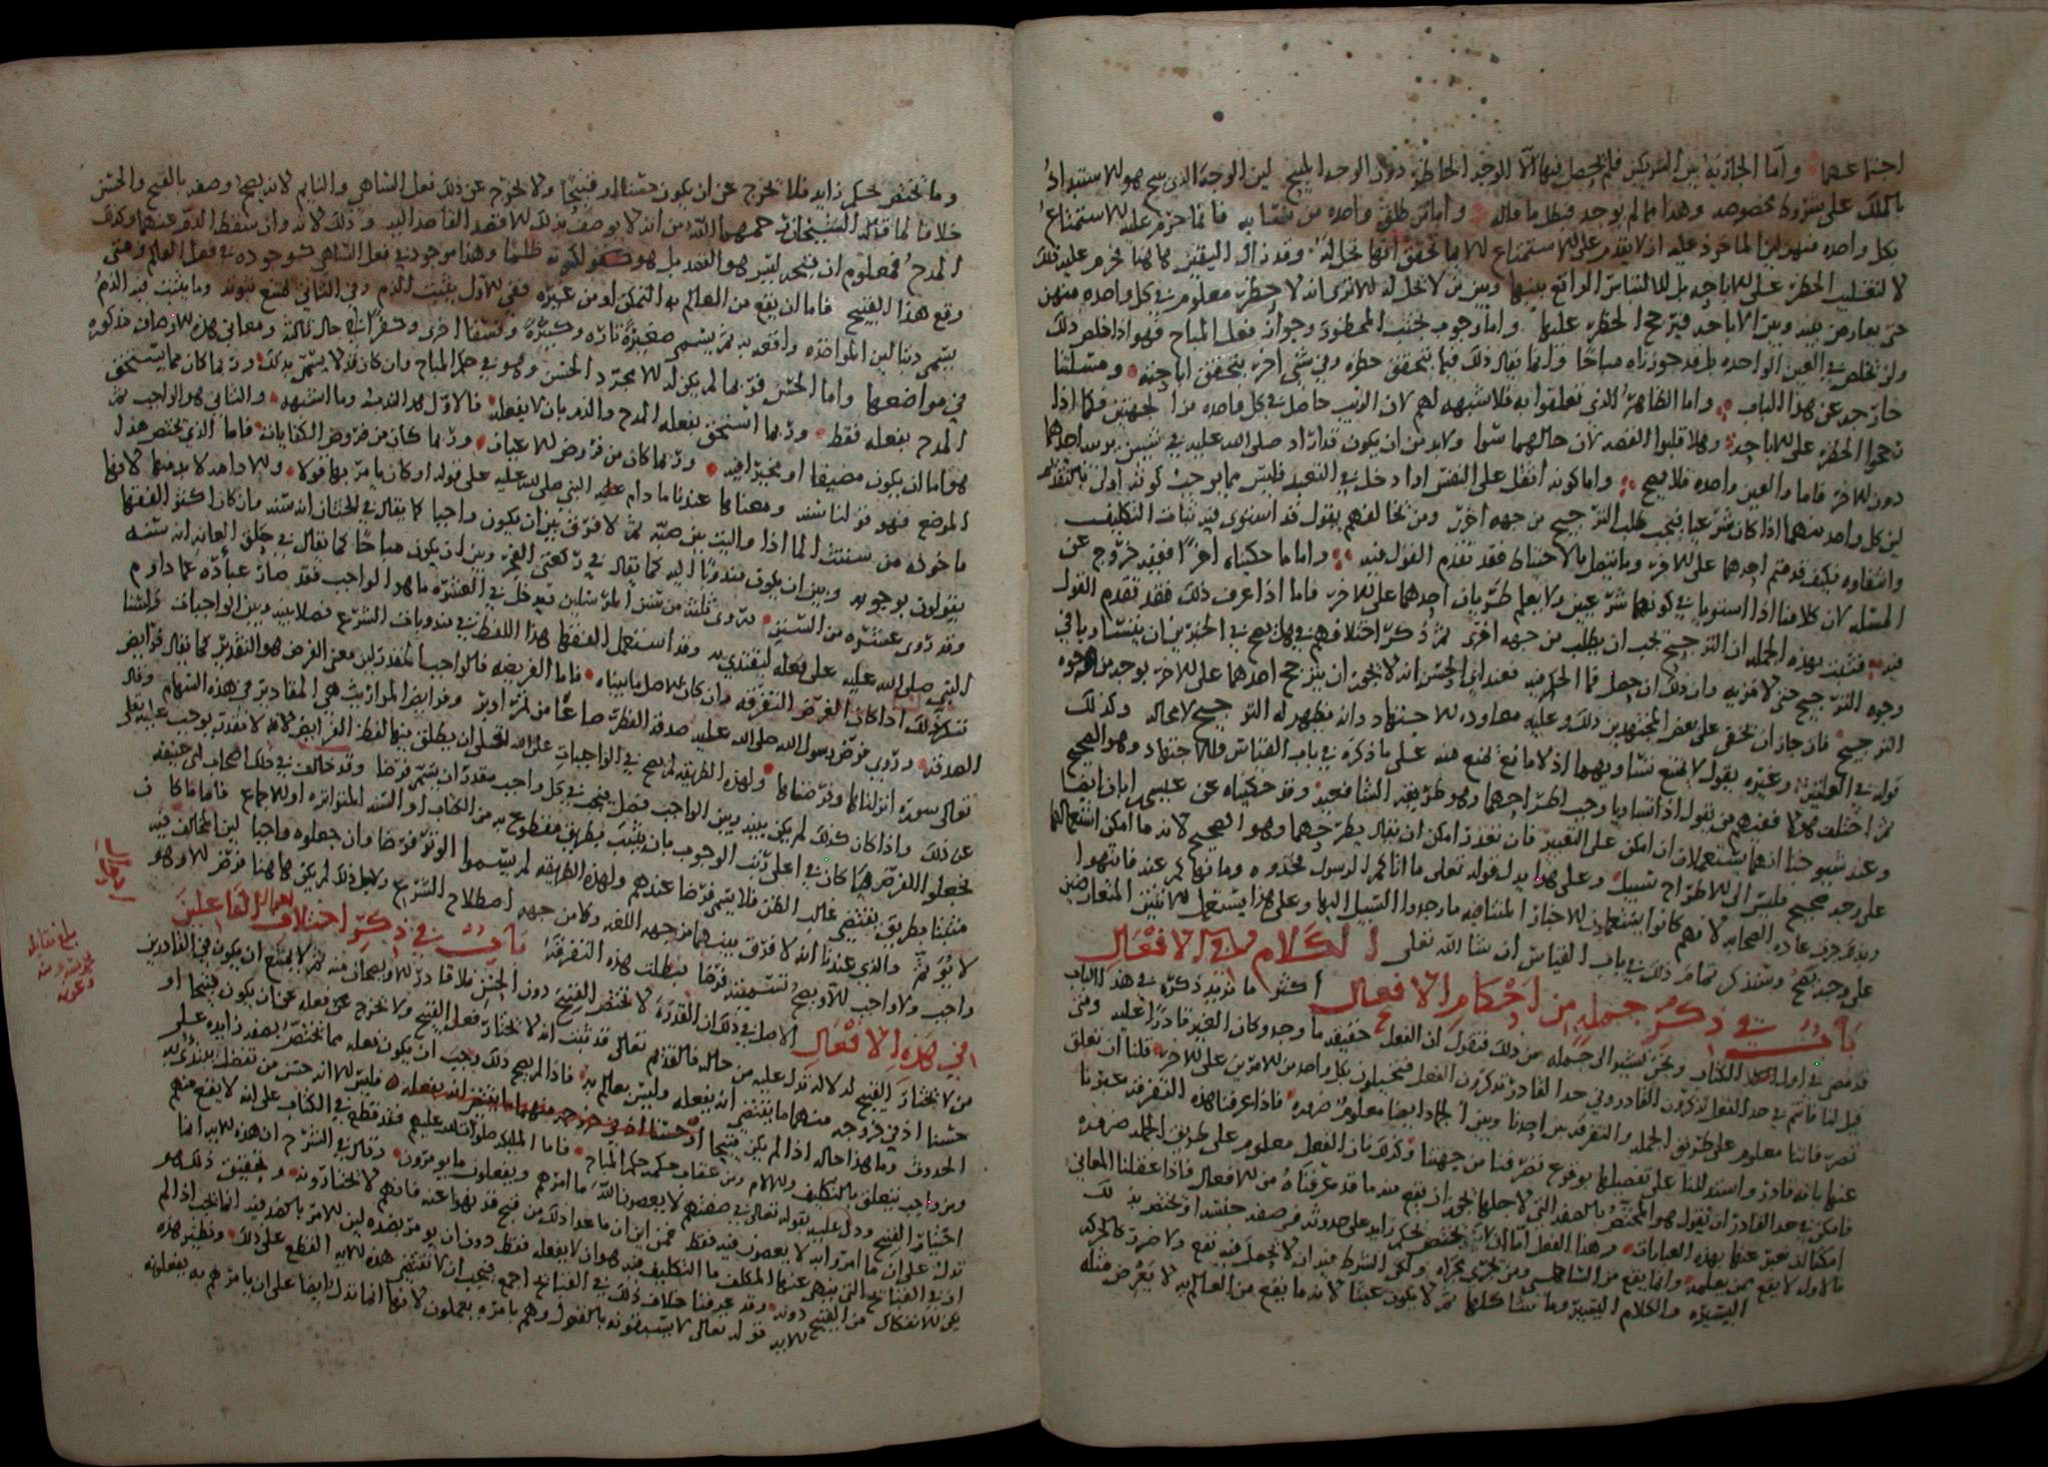 اجتماعهما وأما الجارية بين الشريكين فلم يحصل فيها الا الوجه الحاظر دون الوجه المبيح لين الوجه الذي يبيح هو الاستبداد
بالملك على شروط مخصوصه وهذا مما لم يوجد فبطل ما قاله وأما من طلق واحده من نسايه فانما حرم عليه الاستمتاع
بكل واحده منهن لين الماخوذ عليه ان لا يقدم على الاستمتاع الا بما تحقق انها تحل له وقد زال اليقين هاهنا فحرم عليه ذلك
لا لتغليب الحظر على الاباحه بل للالتباس الواقع بينها وبين من لا تحل له الا ترى انه لا حظر معلوم في كل واحده منهن
حتى يعارض بينه وبين الاباحه فيرجح الحظر عليها وأما وجوب تجنب المحظور وجواز فعل المباح فهو اذا خلص ذلك
ولن يخلص في العين الواحده بل قد جوز انه مباحا وانما يقال ذلك فيما يتحقق حظره وفي شي اخر يتحقق اباحته ومسئلتنا
خارجه عن هذا الباب وأما الظاهر الذي تعلقوا به فلا شبهه لهم لان الريب حاصل في كل واحده من الجهتين فلماذا
رجحوا الحظر على الاباحه وهلا قلبوا القصه لان حالهما سوا ولا بد من ان يكون قد اراد صلى الله عليه في شيين يريد احدهما
دون الاخر فاما والعين واحده فلا يصح وأما كونه اثقل على النفس او ادخل في التعبد فليس مما يوجب كونه اولى بالتقديم
لين كل واحد منهما اذا كان شرعيا فيجب طلب الترجيح من جهه اخرى ومن يخالفهم يقول قد استوى فيه ثبات التكليف
وانتفاوه فكيف قدمتم احدهما على الاخر وما يتصل بالاحتياط فقد تقدم القول فيه وأما ما حكيناه اخرا ففيه خروج عن
المسئله لان كلامنا اذا استويا في كونهما شرعيين ولا يعلم طريان احدهما على الاخر فاما اذا عرف ذلك فقد تقدم القول
فيه فثبت بهذه الجمله ان الترجيح يجب ان يطلب من جهه اخرى ثم ذكر اختلافهم في هل يصح في الخبرين ان يتساويا في
وجوه الترجيح حتى لا مزيه وان ذلك ان حصل فما الحكم فيه فعند ابي الحسن انه لا يجوز ان يترجح احدهما على الاخر بوجه من الوجوه
الترجيح فان جاز ان يخفى على بعض المجتهدين ذلك وعليه معاوده الاجتهاد وانه يظهر له الترجيح لا محاله وكذلك
قوله في العلتين وغيره يقول لا يمتنع تساويهما اذ لا مانع يمنع منه على ما ذكره في باب القياس والاجتهاد وهو الصحيح
ثم اختلف هولا فمنهم من يقول اذا تساويا وجب اطراحهما وهو طريقه الشافعيه وقد حكيناه عن عيسى ابان ايضا
وعند شيوخنا انهما يستعملان ان امكن على التخيير فان تعذر امكن ان يقال بطرحهما وهو الصحيح لانه ما امكن استعمالهما
على وجه صحيح فليس الى الاطراح سبيل وعلى هذا يدل قوله تعلى ما اتاكم الرسول فخذوه وما نهاكم عنه فانتهوا
وبه عرف عاده الصحابه لانهم كانوا يستعملون الاخبار المتنافيه ما وجدوا السبيل اليها وعلى هذا يستعمل الاثنين المتعارضين
على وجه يصح وسنذكر تمام ذلك في باب القياس ان شا الله تعلى الكلام في الافعال
باب في ذكر جمله من احكام الافعال اكثر ما نريد ذكره في هذا الباب
قد مضى في اول هذا الكتاب ونحن نشير الى جمله من ذلك فنقول ان الفعل حقيقه ما وجد وكان الغير قادرا عليه ومتى
قيل لنا فانتم في حد الفعل تذكرون القادر وفي حد القادر تذكرون الفعل فتحيلون بكل واحد من الامرين على الاخر قلنا ان تعلق
تصرفاتنا معلوم على طريق الجمله والتفرقه بين احدنا وبين الجماد ايضا معلوم ضروره فاذا عرفنا هذه التفرقه عبرنا
عنها بانه قادر واستدللنا على تفصيلها بوقوع تصرفنا من جهتنا وكذلك فان الفعل معلوم على طريق الجمله ضروره
فامكن في حد القادر ان نقول هو المختص بالصفه التي لاجلها يجوز ان يقع منه ما قد عرفناه من الافعال فاذا عقلنا المعاني
امكنا ان نعبر عنها بهذه العبارات وهذا الفعل اما ان لا يختص بحكم زايد على حدوثه من صفه جنسه او يختص بذلك
فالاول لا يقع ممن يعلمه وانما يقع من الساهي ومن يجري مجراه ولكن الشرط فيه ان لا يحصل فيه نفع ولا ضرر كالحركه
اليسيره والكلام اليسير وما شاكلها ثم لا يكون عبثا لانه ما يقع من العالم به لا يعرض مثله
وما يختص بحكم زايد فلا يخرج عن ان يكون حسنا او قبيحا ولا يخرج عن ذلك فعل الساهي والنايم لانه يصح وصفه بالقبح والحسن
خلافا لما قاله الشيخان رحمهما الله من انه لا يوصف بذلك الا لقصد القاصد اليه وذلك لانه وان سقط الذم عنهما وكذلك
المدح فمعلوم ان قبحه ليس هو القصد بل هو لكونه ظلما وهذا موجود في فعل الساهي كوجوده في فعل العالم ومتى
وقع هذا القبيح فاما ان يقع من العالم به المتمكن او من غيره ففي الاول يثبت الذم وفي الثاني يمتنع ثبوته وما يثبت فيه الذم
يسمى ذنبا لين المواخذه واقعه به ثم يسمى صغيره تاره وكبيره وفسقا اخرى وكفرا في حال ثالثه ومعاني هذه الاوصاف مذكوره
في مواضعها وأما الحسن فربما لم يكن له الا مجرد الحسن وهو في حكم المباح وان كان قد لا يسمى بذلك وربما كان مما يستحق
المدح بفعله فقط وربما استحق بفعله المدح والذم بان لا يفعله فالاول هو الندب وما اشبهه والثاني هو الواجب ثم
هو اما ان يكون مضيقا او مخيرا فيه وربما كان من فروض الاعيان وربما كان من فروض الكفايات فاما الذي يختص هذا
الموضع فهو قولنا سنه ومعناها عندنا ما دام عليه النبي صلى الله عليه على فعله او كان يامر بها قولا ولا احد لابد منهما لانها
ماخوذه من سننت الما اذا واليت بين صبه ثم لا فرق بين ان يكون واجبا كما يقال في الختان انه سنه وان كان اكثر الفقها
يقولون بوجوبه وبين ان يكون مندوبا اليه كما يقال في ركعتي الفجر وبين ان يكون مباحا كما يقال في حلق العانه انه سنه
وقد روي عشره من السنن وروي ثلث من سنن المرسلين فيدخل في العشره ما هو الواجب فقد صار عباره عما داوم
النبي صلى الله عليه على فعله ليقتدى به وقد استعمل الفقها هذا اللفظ في مندوبات الشرع فصلا بينه وبين الواجبات فلسنا
ننكر ذلك اذا كان الغرض التفرقه وان كان الاصل ما بيناه فاما الفريضه فالواجب المقدر لين معنى الفرض هو التقدير كما يقال فرايض
الصدقه وروي فرض رسول الله صلى الله عليه صدقه الفطر صاعا من تمر او بر وفرايض المواريث هي المقادير في هذه السهام وقال
تعالى سوره انزلناها وفرضناها ولهذه الطريقه لم يصح في الواجبات على الله تعلى ان يطلق فيها لفظ الفرايض لانه لا مقدر يوجب عليه تعلى
عن ذلك واذا كان كذلك لم يكن بينه وبين الواجب فصل فيجب في كل واجب مقدر ان يسمى فرضا وقد خالف في ذلك اصحاب ابي حنيفه
فجعلوا الفرض ما كان في اعلى رتب الوجوب بان يثبت بطريق مقطوع به من الكتاب او السنه المتواتره او الاجماع فاما ما كان
مثبتا بطريق يقتضي غالب الظن فلا يسمى فرضا عندهم ولهذه الطريقه لم يسموا الوتر فرضا وان جعلوه واجبا لين المخالف فيه
لا يؤثم والذي عندنا انه لا فرق بينهما من جهه اللغه وكما من جهه اصطلاح الشرع ولاجل ذلك لم يكن هاهنا فرض الا وهو
واجب ولا واجب الا ويصح تسميته فرضا فبطلت هذه التفرقه باب في ذكر اختلاف احوال الفاعلين
في هذه الافعال الاصل في ذلك ان القدره لا تختص القبيح دون الحسن فلا قادر الا ويصحان منه ثم لا يمتنع ان يكون في القادرين
من لا يختار القبيح لدلاله تدل عليه من حاله فالقديم تعالى قد ثبت انه لا يختار فعل القبيح ولا يخرج عن فعله عن ان يكون قبيحا او
حسنا اذ في خروجه منهما ما يقتضي ان يفعله وليس بعالم به فاذا لم يصح ذلك وجب ان يكون فعله مما يختص بصفه زايده على
الحدوث وما هذا حاله اذا لم يكن قبيحا فليس الا انه حسن من تفضل يبتدي به
ومن واجب يتعلق بالتكليف والالام ومن عقاب حكمه حكم المباح فاما الملايكه صلوات الله عليهم فقد قطع في الكتاب على انه لا يقع منهم
اختيار القبيح ودل عليه بقوله تعالى في صفتهم لا يعصون الله ما امرهم ويفعلون ما يومرون وقال في الشرح ان هذه الايه انما
تدل على ان ما امروا به لا يعصون فيه فقط فمن اين ان ما عدا ذلك من قبح قد نهوا عنه فانهم لا يختارونه وتحقيق ذلك هو
ان في القبايح التي ينهى عنها المكلف ما التكليف فيه هو ان لا يفعله فقط دون ان يومر بضده لين الامر بالضد فيه انما يجب اذا لم
يمكن الانفكاك من القبيح الا به وقد عرفنا خلاف ذلك في القبايح اجمع فيجب ان لا تقتضي هذه الايه القطع على ذلك ونظير هذه
الايه قوله تعالى لا يسبقونه بالقول وهم بامره يعملون لانها انما تدل ايضا على ان ما امرهم به يفعلونه
بلغ مقابله